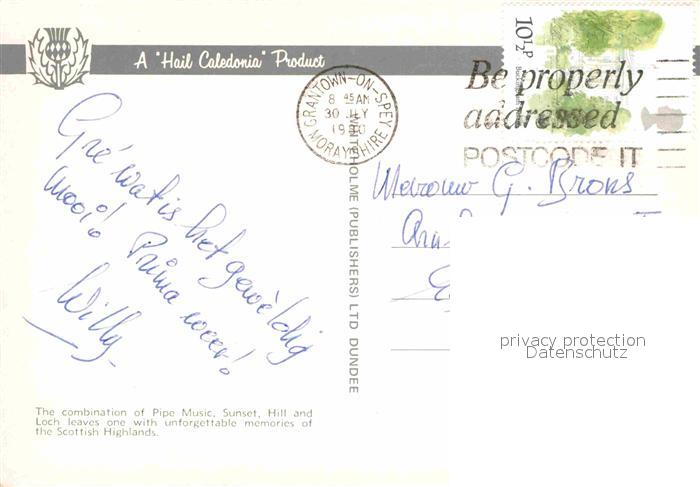 A "Hail Caledonia" Product
GRANTOWN-ON-SPEY
8 45 AM
30 JLY
1980
MORAYSHIRE
10½P
Be properly
addressed
POSTCODE IT
WHITEHOLME (PUBLISHERS) LTD DUNDEE
Gré wat is het geweldig
mooi! Prima weer!
Willy
Mevrouw G. Brons
privacy protection
Datenschutz
The combination of Pipe Music, Sunset, Hill and
Loch leaves one with unforgettable memories of
the Scottish Highlands.